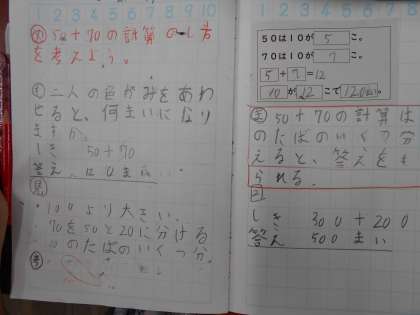 1 2 3 4 5 6 7 8 9 10
め 50+70の計算のし方
を考えよう。
二人の色がみをあわ
せると、何まいになり
ますか。
しき 50+70
答え
見
・100より大きい。
・70を50と20に分ける
・10のたばのいくつ分。
考
1 2 3 4 5 6 7 8
50は10が 5 こ。
70は10が 7 こ。
5+7=12
10が 12 こで 120
ま 50+70の計算は
のたばのいくつ分
えると、答えをも
られる。
しき 300+200
答え 500まい